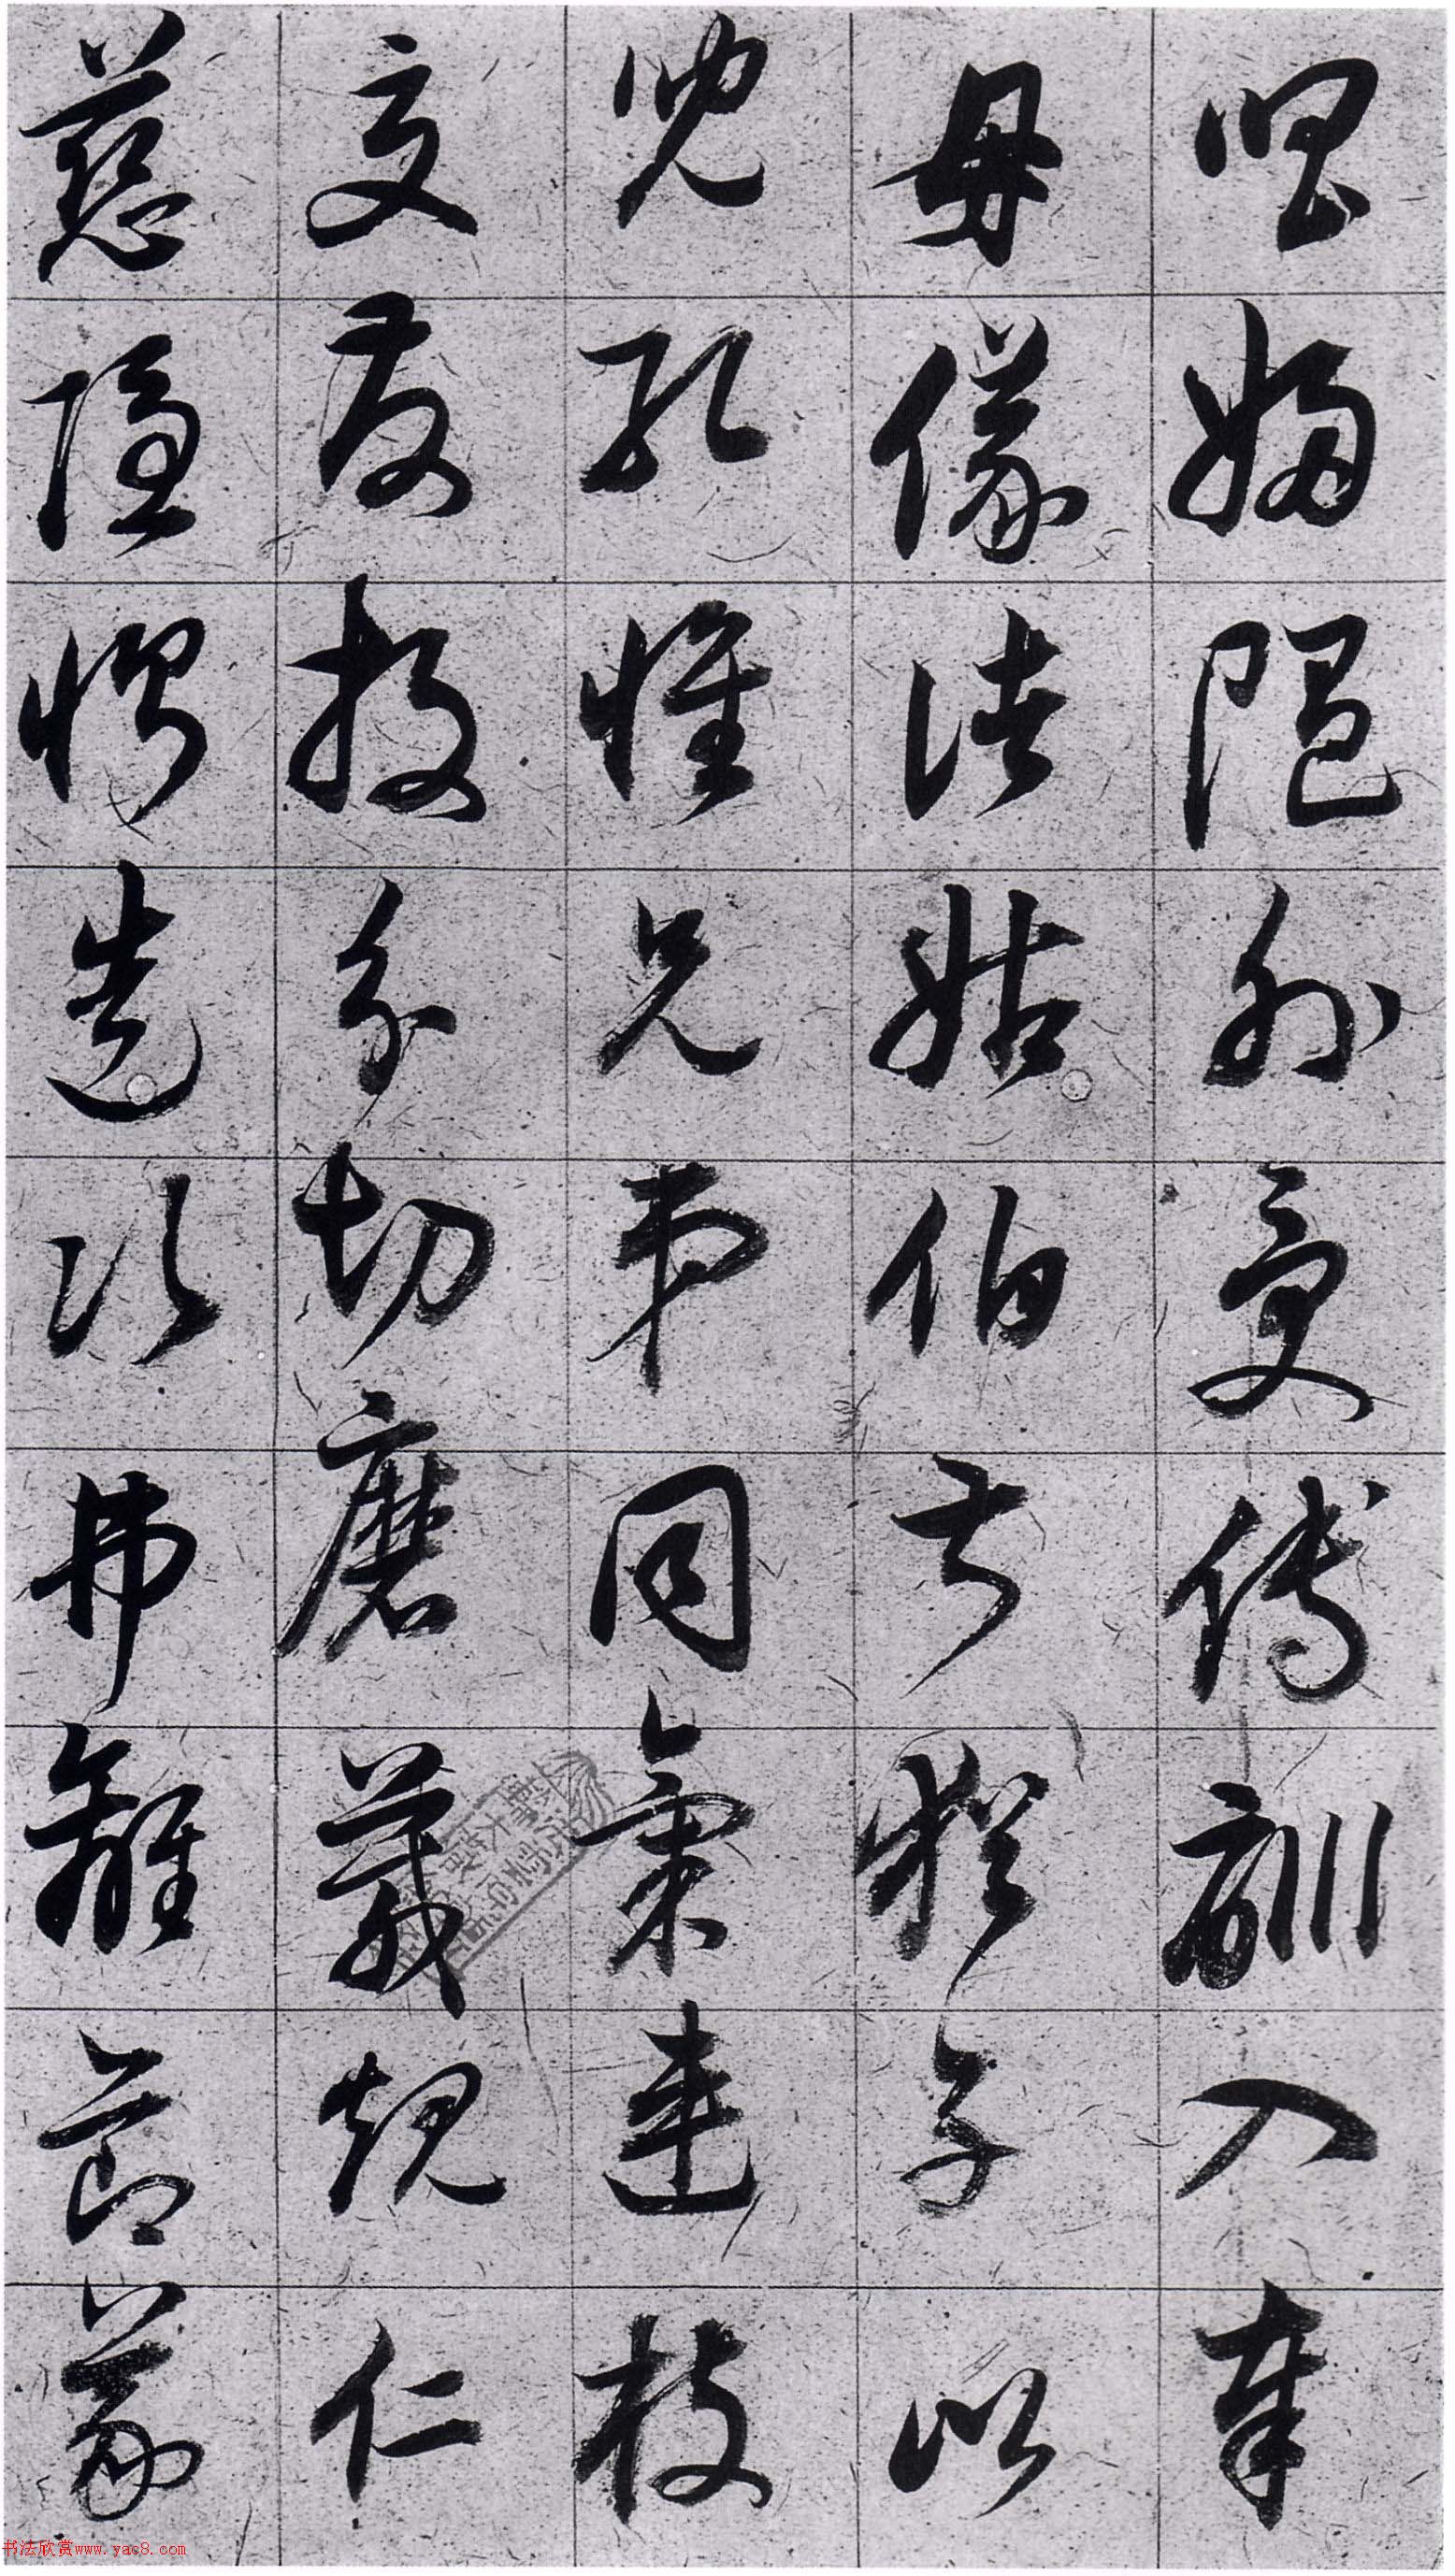 唱婦随外受傅訓入奉
母儀諸姑伯叔猶子比
兒孔懷兄弟同氣連枝
交友投分切磨箴規仁
慈隱惻造次弗離節義
书法欣赏www.yac8.com